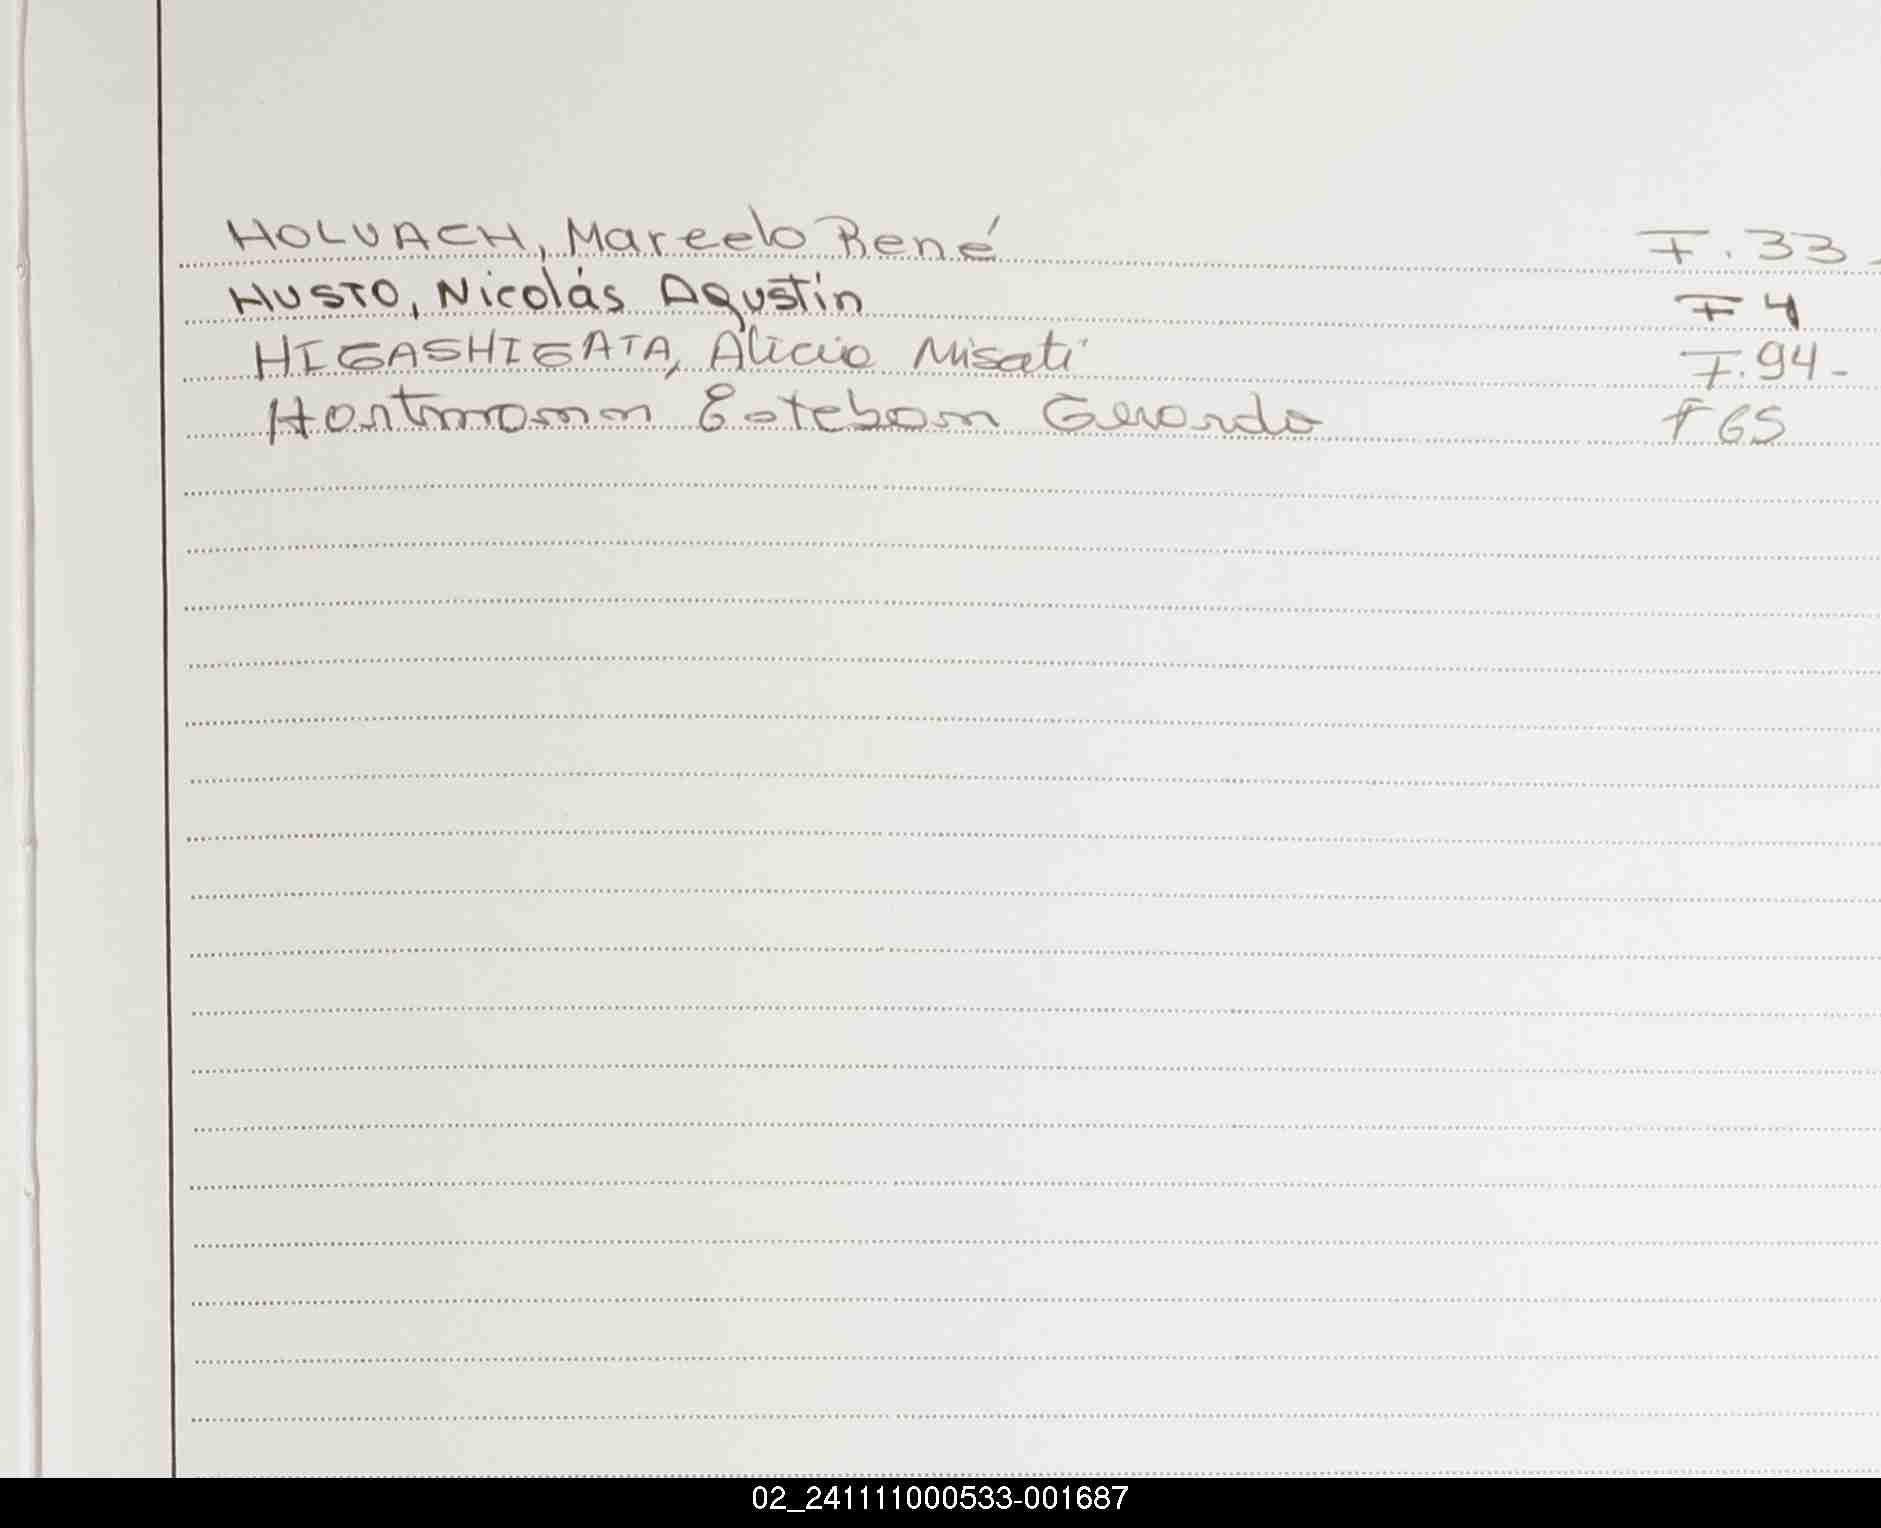 HOLVACH, Marcelo René F. 33-
HUSTO, Nicolás Agustín F 4
HIGASHIGATA, Alicia Misati F. 94-
Hartmann Esteban Gerardo F 65
02_241111000533-001687